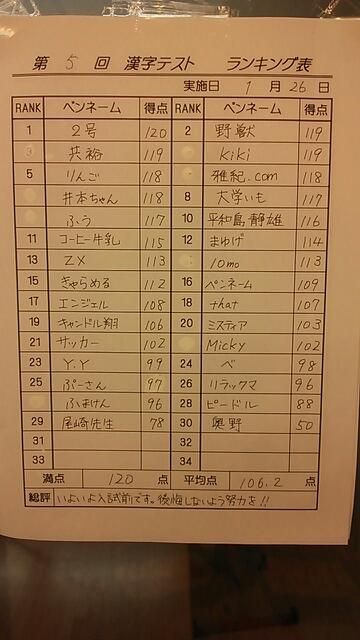 第 5 回 漢字テスト ランキング表
実施日 1 月 26 日
RANK ペンネーム 得点 RANK ペンネーム 得点
1 2号 120 2 野獣 119
共裕 119 kiki 119
5 りんご 118 雅紀.com 118
井本ちゃん 118 8 大学いも 117
ふう 117 10 平和島静雄 116
11 コーヒー牛乳 115 12 まゆげ 114
13 ZX 113 10mo 113
15 きゃらめる 112 16 ペンネーム 109
17 エンジェル 108 18 that 107
19 キャンドル翔 106 20 ミスティア 103
21 サッカー 102 Micky 102
23 Y.Y 99 24 べ 98
25 ぷーさん 97 26 リラックマ 96
ふまけん 96 28 ピードル 88
29 尾崎先生 78 30 奥野 50
31 32
33 34
満点 120 点 平均点 106.2 点
総評 いよいよ入試前です。後悔しないよう努力を!!